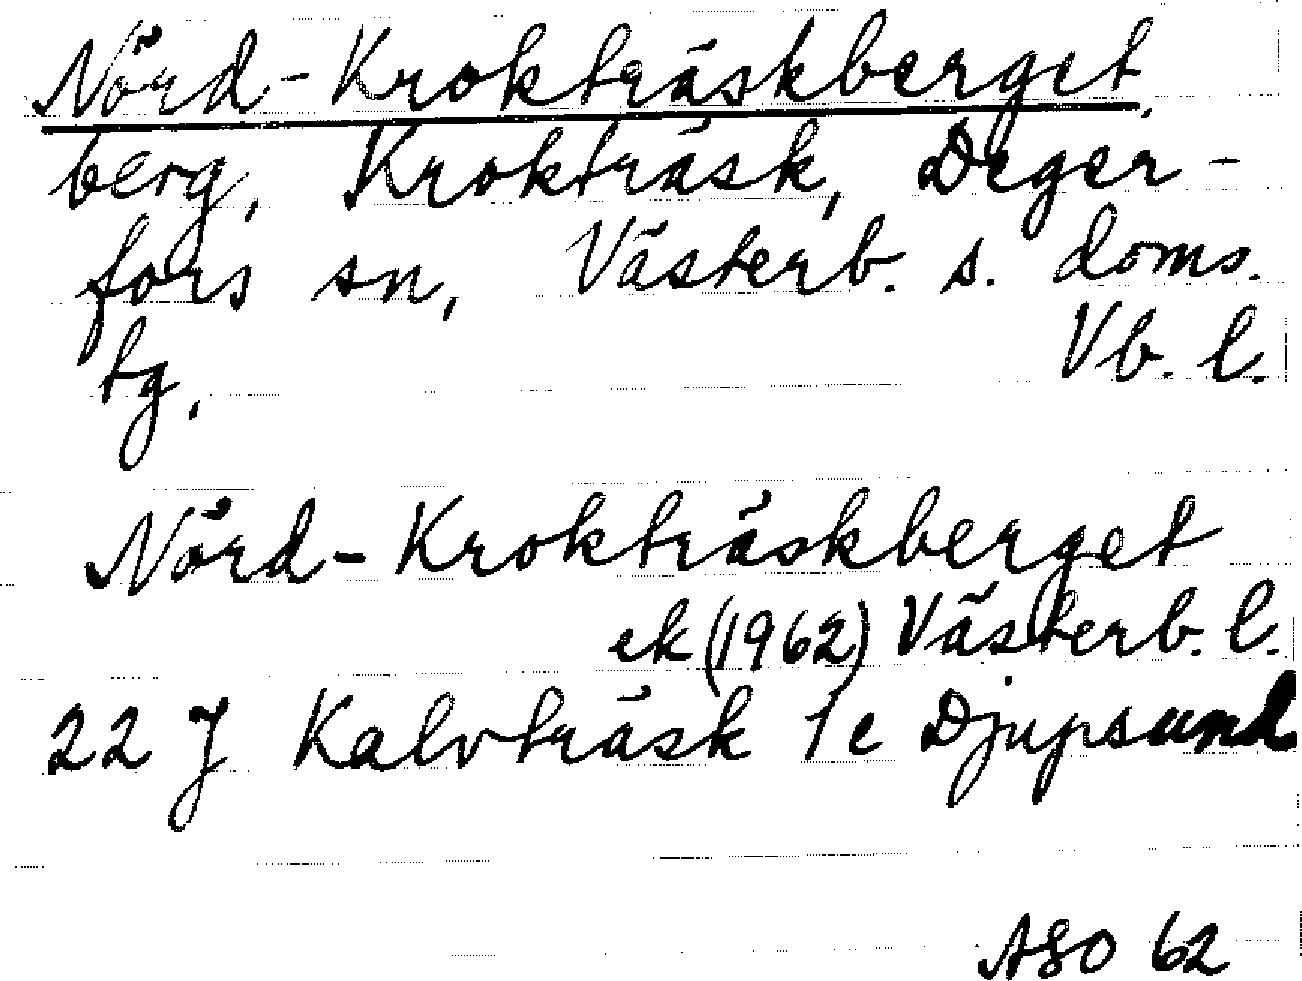 Nörd-Krokträskberget,
berg, Krokträsk, Deger-
fors sn, Västerb. s. doms.
tg. Vb. l.
Nörd-Krokträskberget
ek (1962) Västerb. l.
22 J Kalvträsk 1 e Djupsund
ASO 62